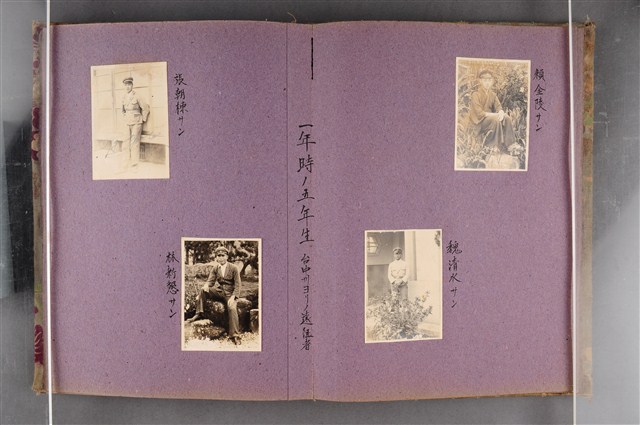 賴金陵サン
魏清水サン
一年時ノ五年生 台中州ヨリ
張朝棟サン
サン